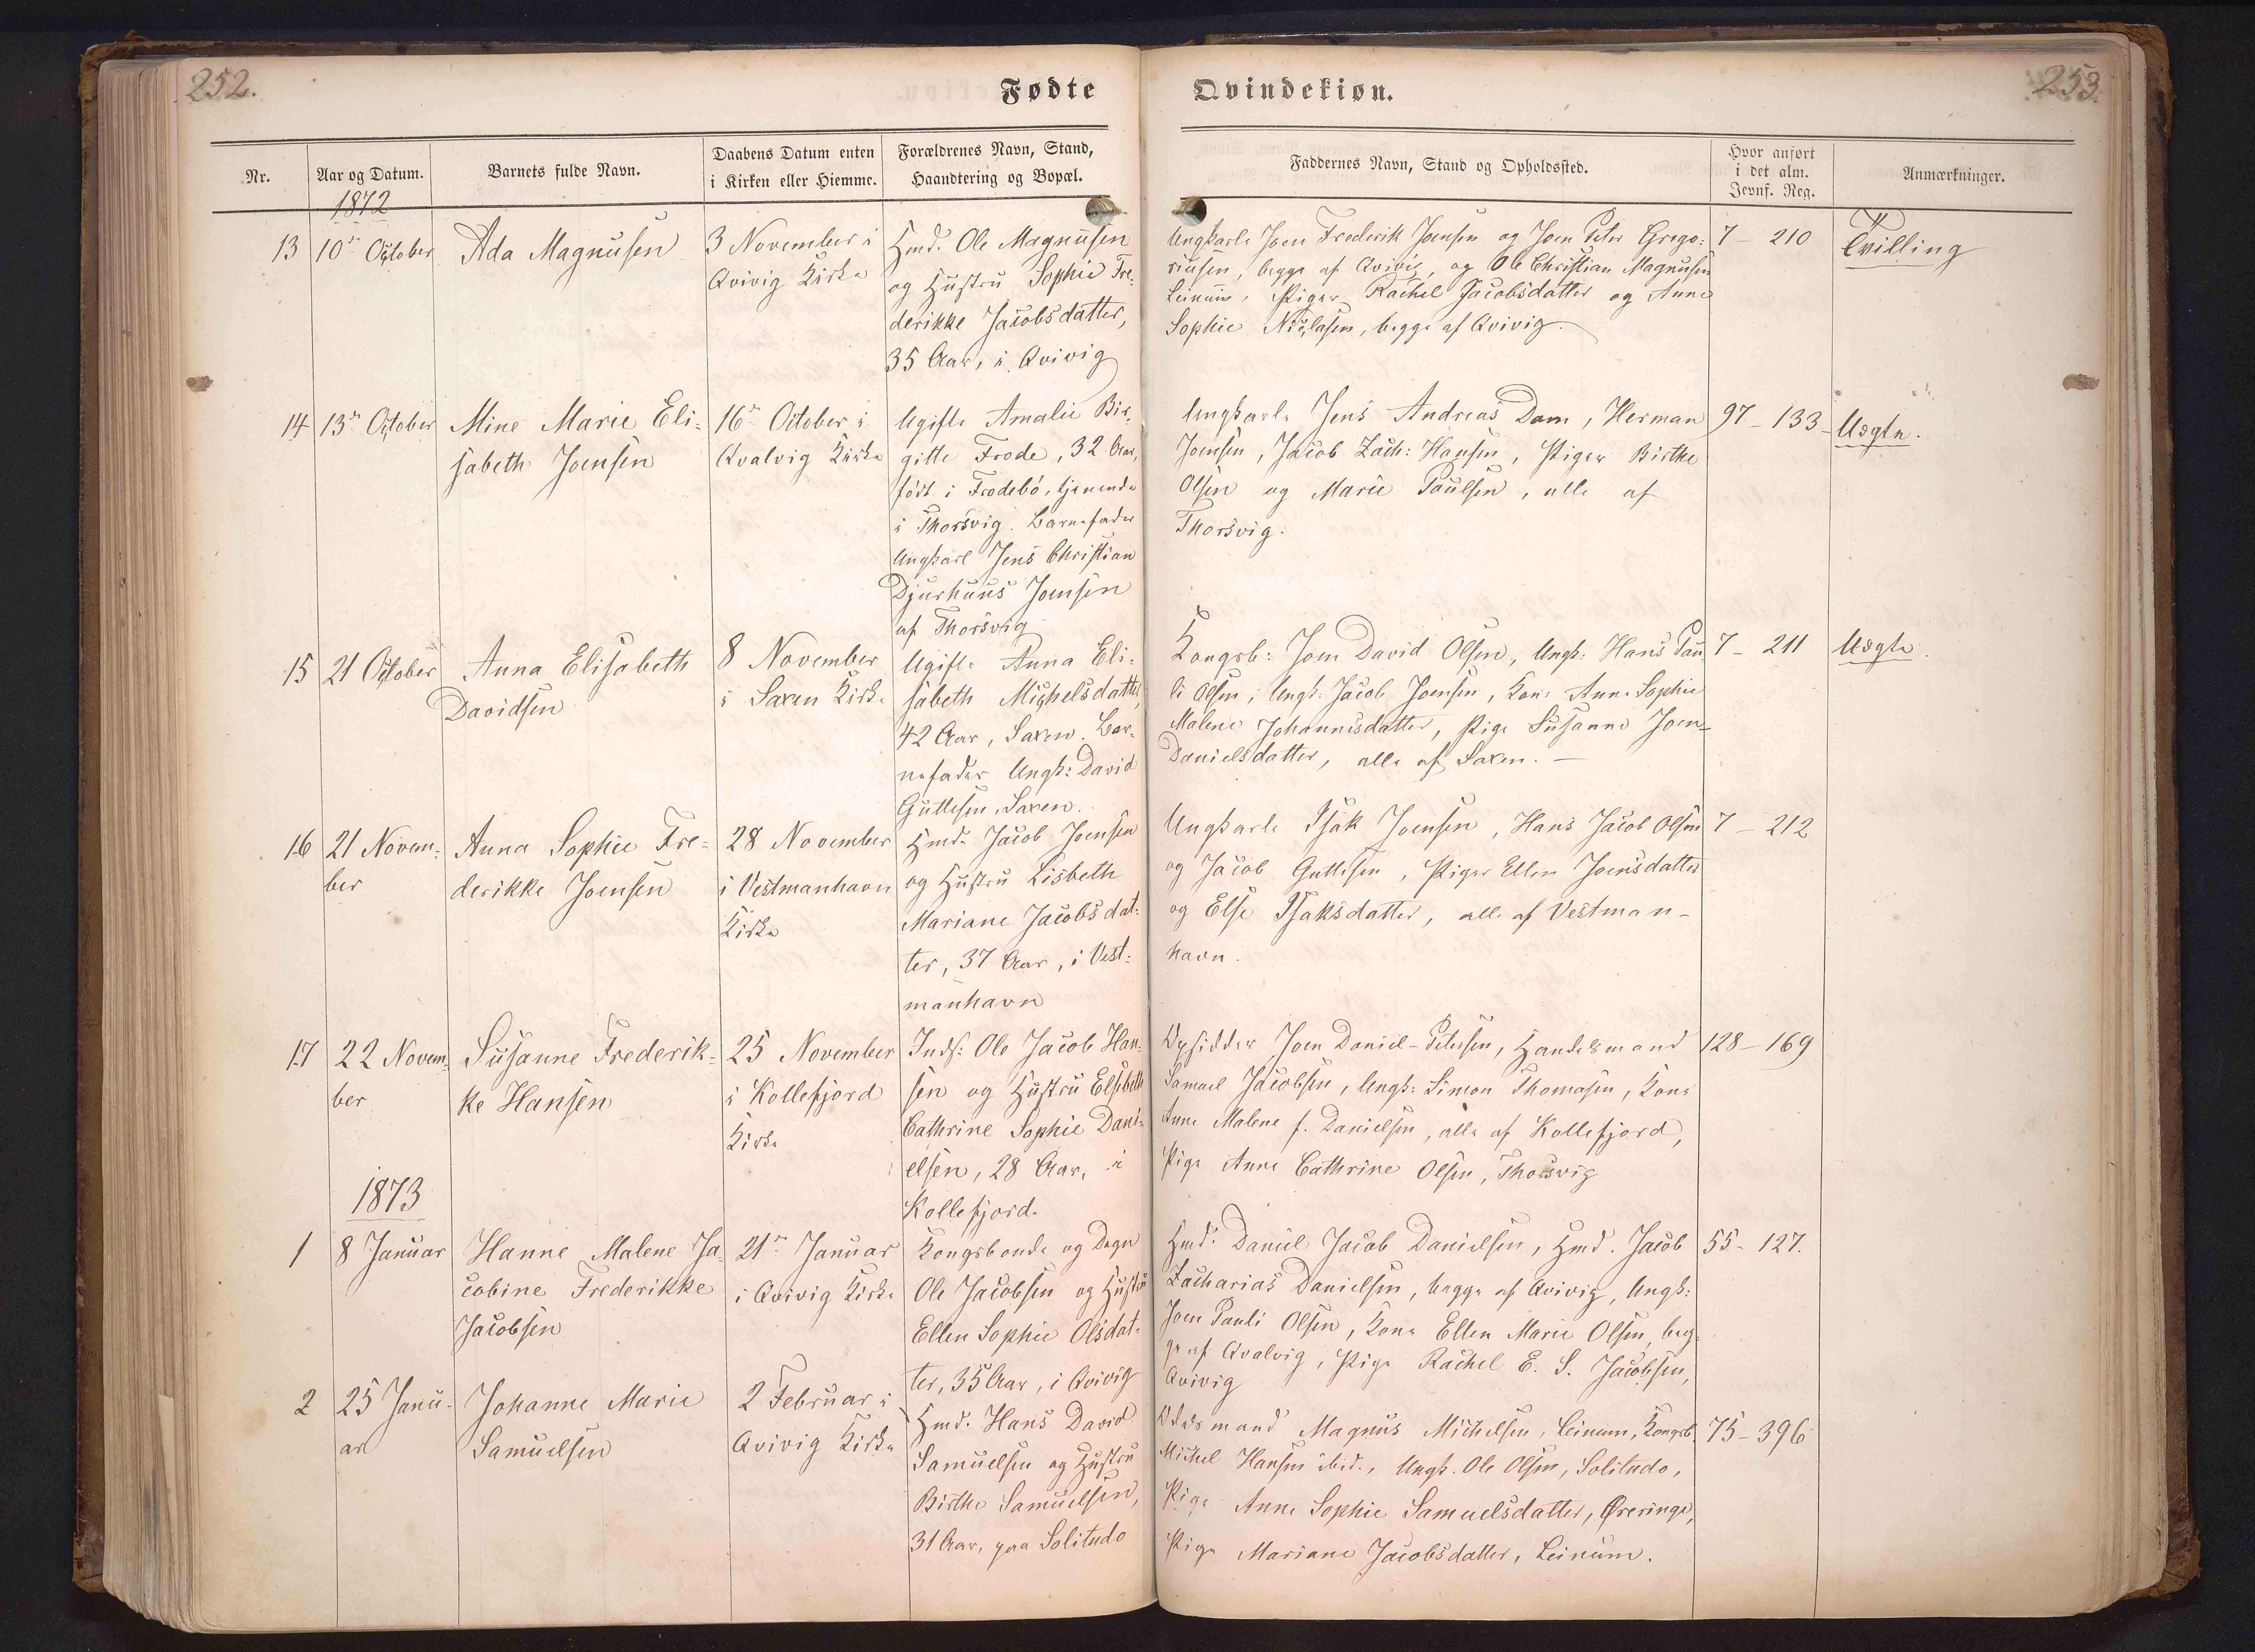 252.
Fødte
Nr.
Aar og Datum.
Barnets fulde Navn.
Daabens Datum enten
i Kirken eller Hiemme.
Forældrenes Navn, Stand,
Haandtering og Bopæl.
1872
13
10de October
Ada Magnusen
3 November i
Qvivig Kirke
Hmd. Ole Magnusen
og Hustru Sophie Fre-
derikke Jacobsdatter,
35 Aar, i Qvivig
14
13de October
Mine Marie Eli-
sabeth Joensen
16de October i
Qvalvig Kirke
Ugifte Amalie Bir-
gitte Frode, 32 Aar,
født i Frodebö, tjenende
i Thorsvig. Barnefader
Ungkarl Jens Christian
Djurhuus Joensen
af Thorsvig
15
21 October
Anna Elisabeth
Davidsen
8 November
i Saxen Kirke
Ugifte Anna Eli-
sabeth Michelsdatter,
42 Aar, Saxen. Bar-
nefader Ungk: David
Guttesen, Saxen.
16
21 Novem-
ber
Anna Sophie Fre-
derikke Joensen
28 November
i Vestmanhavn
Kirke
Hmd. Jacob Joensen
og Hustru Lisbeth
Mariane Jacobsdat-
ter, 37 Aar, i Vest-
manhavn
17
22 Novem-
ber
Susanne Frederik-
ke Hansen
25 November
i Kollefjord
Kirke
Inds: Ole Jacob Han-
sen og Hustru Elsebeth
Cathrine Sophie Dani-
elsen, 28 Aar, i
Kollefjord.
1873
1
8 Januar
Hanne Malene Ja-
cobine Frederikke
Jacobsen
21de Januar
i Qvivig Kirke
Kongsbonde og Degn
Ole Jacobsen og Hustru
Ellen Sophie Olsdat-
ter, 35 Aar, i Qvivig
2
25 Janu-
ar
Johanne Marie
Samuelsen
2 Februar i
Qvivig Kirke
Hmd. Hans David
Samuelsen og Hustru
Birthe Samuelsen,
31 Aar, paa Solitudo
Qvindekiøn.
253.
Faddernes Navn, Stand og Opholdssted.
Hvor anført
i det alm.
Jevnf. Reg.
Anmærkninger.
Ungkarle Joen Frederik Joensen og Joen Peter Grego-
riusen, begge af Qvivig, og Ole Christian Magnusen
Leinum, Piger Rachel Jacobsdatter og Anne
Sophie Nicolasen, begge af Qvivig.
7 - 210
Tvilling
Ungkarle Jens Andreas Dam, Herman
Joensen, Jacob Zach: Hansen, Piger Birthe
Olsen og Marie Paulsen, alle af
Thorsvig.
97 - 133
Uægte.
Kongsb: Joen David Olsen, Ungk: Hans Pau-
li Olsen, Ungk. Jacob Joensen, Kone Anne Sophie
Malene Johannesdatter, Pige Susanne Joen-
Danielsdatter, alle af Saxen. —
7 - 211
Uægte.
Ungkarle Isak Joensen, Hans Jacob Olsen
og Jacob Guttesen, Piger Ellen Joensdatter
og Else Isaksdatter, alle af Vestman-
havn.
7 - 212
Opsidder Joen Daniel-Petersen, Handelsmand
Samuel Jacobsen, Ungk: Simon Thomasen, Kone
Anne Malene f. Danielsen, alle af Kollefjord,
Pige Anne Cathrine Olsen, Thorsvig
128 - 169
Hmd: Daniel Jacob Danielsen, Hmd. Jacob
Zacharias Danielsen, begge af Qvivig, Ungk:
Joen Pauli Olsen, Kone Ellen Marie Olsen, beg-
ge af Qvalvig, Pige Rachel E. S. Jacobsen,
Qvivig
55 - 127.
Odelsmand Magnus Michelsen, Leinum, Kongsb.
Michel Hansen ibid., Ungk. Ole Olsen, Solitudo,
Pige Anne Sophie Samuelsdatter, Øreringe,
Pige Mariane Jacobsdatter, Leinum.
75 - 396